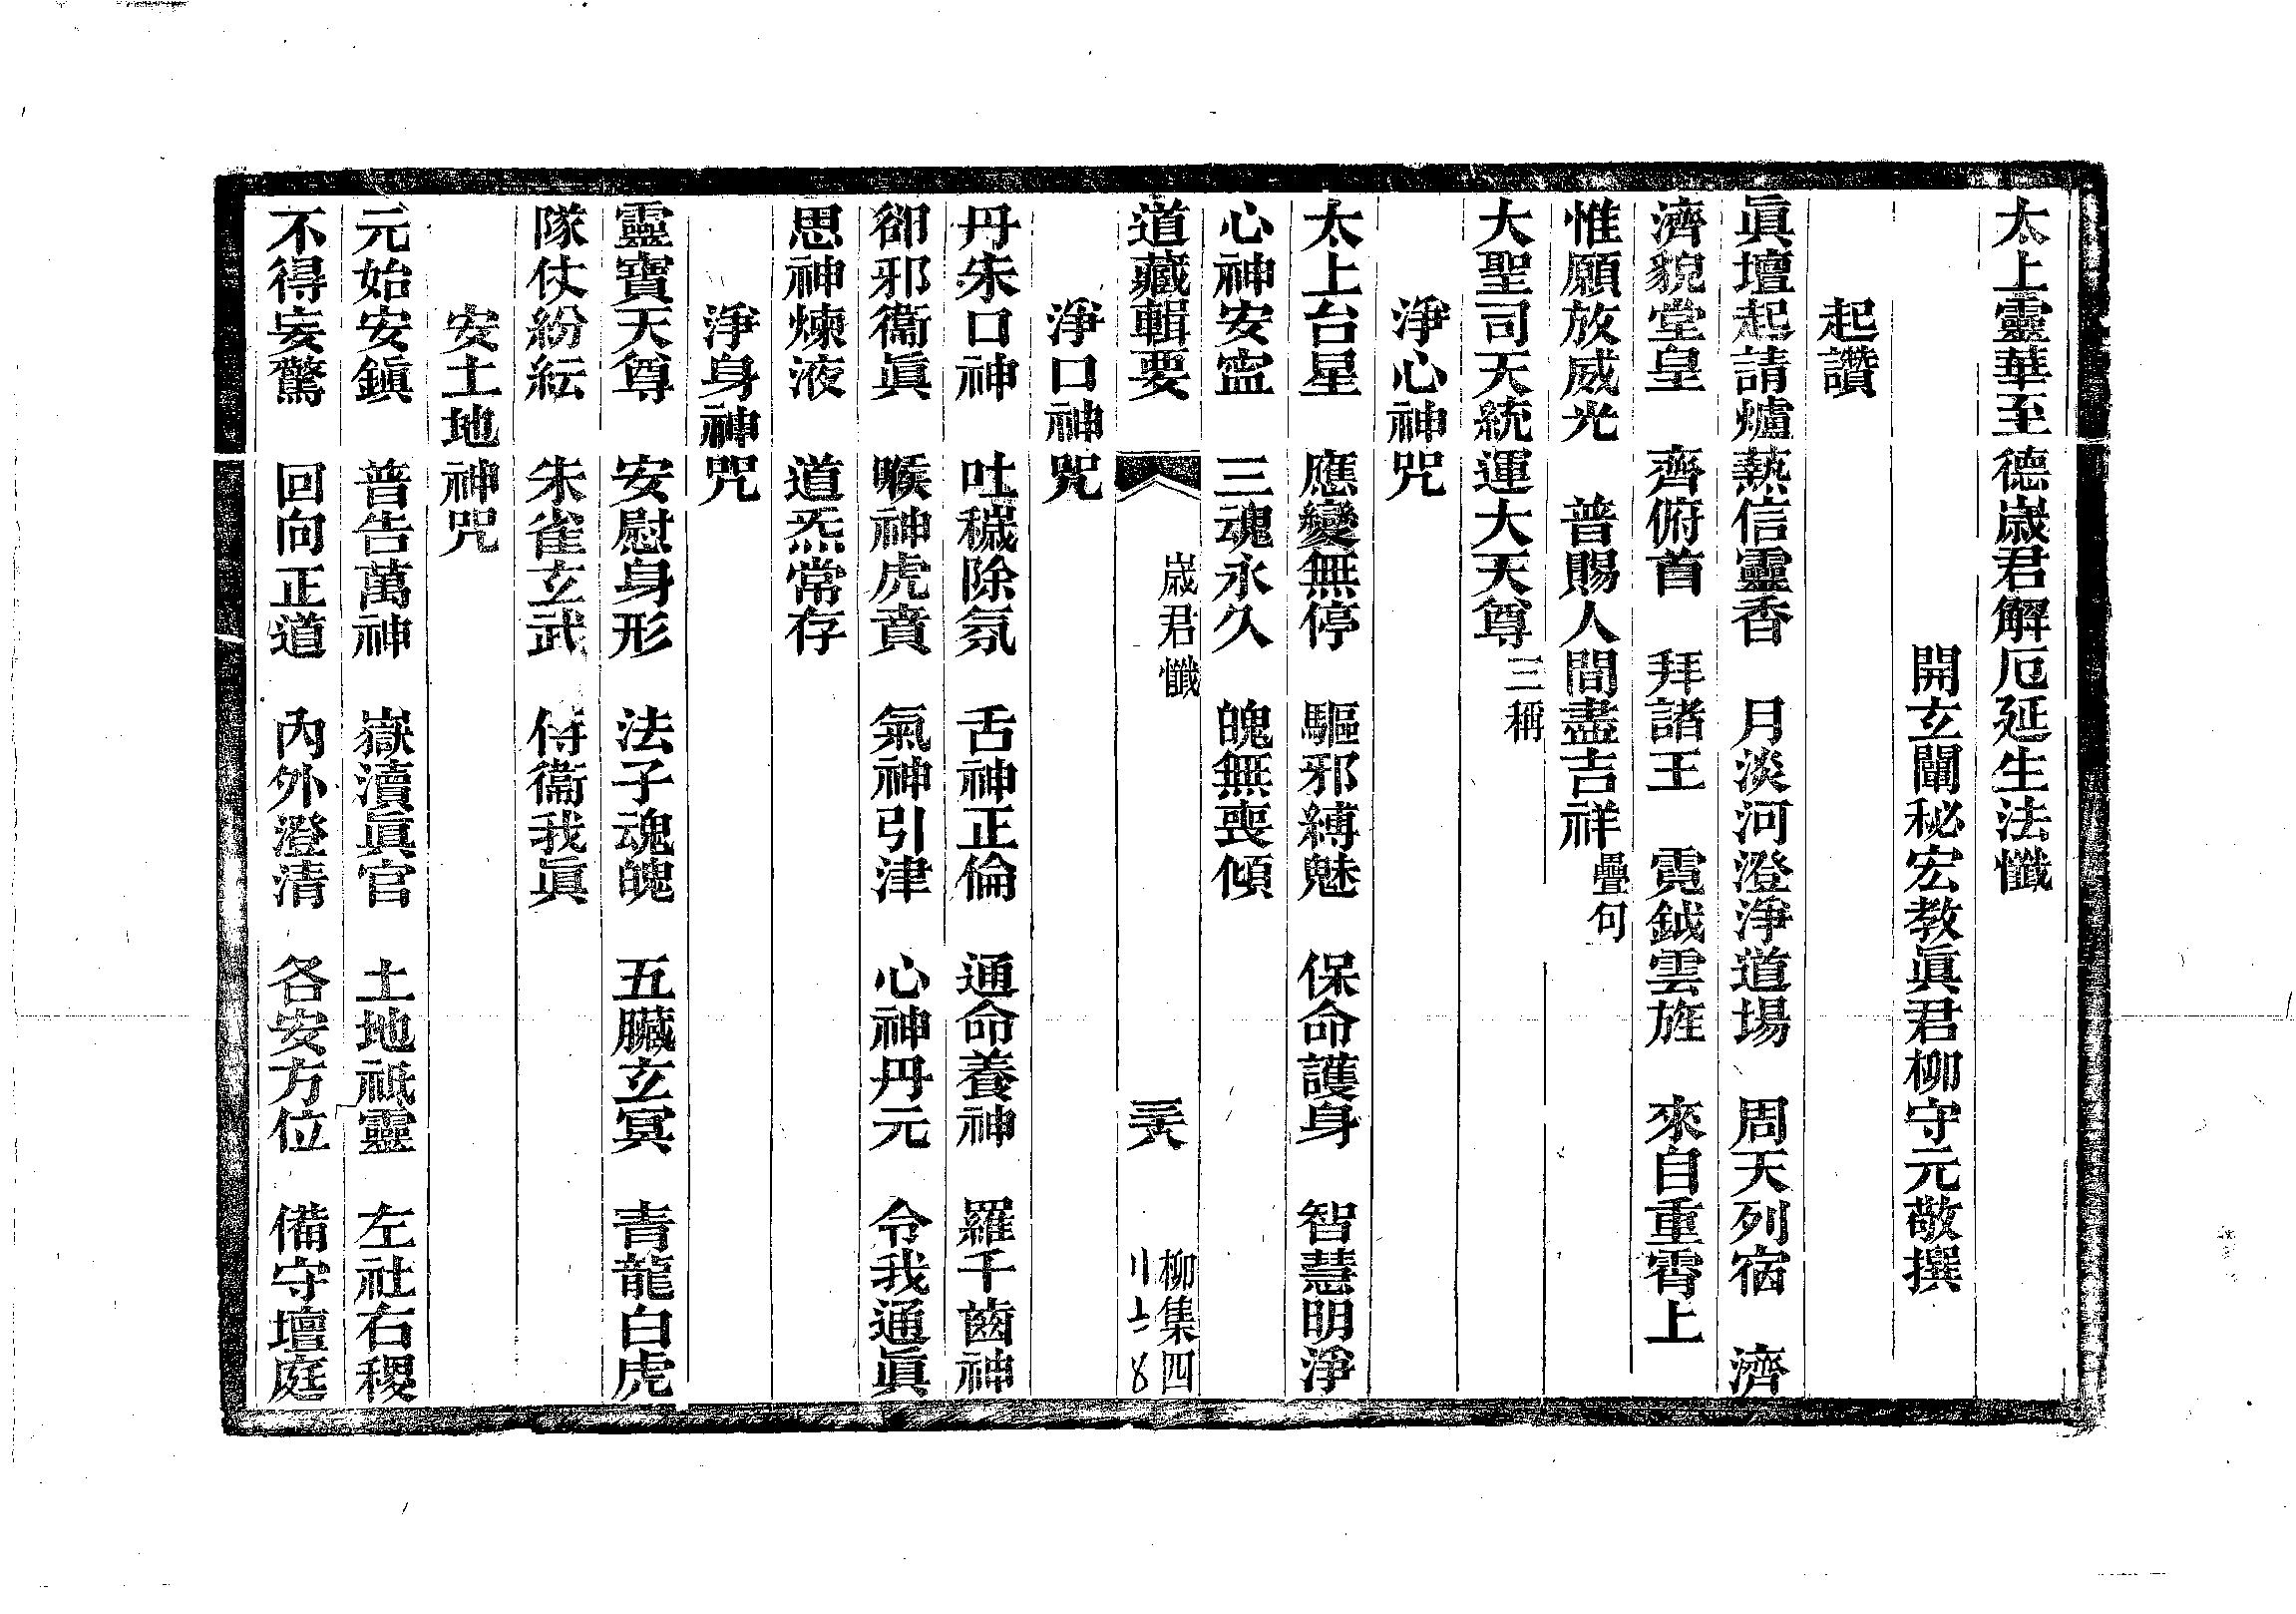 太上靈華至德歲君解厄延生法懺
開玄闡秘宏教眞君柳守元敬撰
起讚
眞壇起請爐熱信靈香　月淡河澄淨道場　周天列宿　濟
濟貌堂皇　齊俯首　拜諸王　霓鉞雲旌　來自重霄上
惟願放威光　普賜人間盡吉祥疊句
大聖司天統運大天尊三稱
淨心神咒
太上台星　應變無停　驅邪縛魅　保命護身　智慧明淨
心神安寍　三魂永久　魄無喪傾
道藏輯要　歲君懺　三六　柳集四
淨口神咒
丹朱口神　吐穢除氛　舌神正倫　通命養神　羅千齒神
卻邪衞眞　喉神虎賁　氣神引津　心神丹元　令我通眞
思神煉液　道炁常存
淨身神咒
靈寶天尊　安慰身形　法子魂魄　五臟玄冥　青龍白虎
隊仗紛紜　朱雀玄武　侍衞我眞
安土地神咒
元始安鎭　普告萬神　嶽瀆眞官　土地祇靈　左社右稷
不得妄驚　回向正道　內外澄清　各安方位　備守壇庭